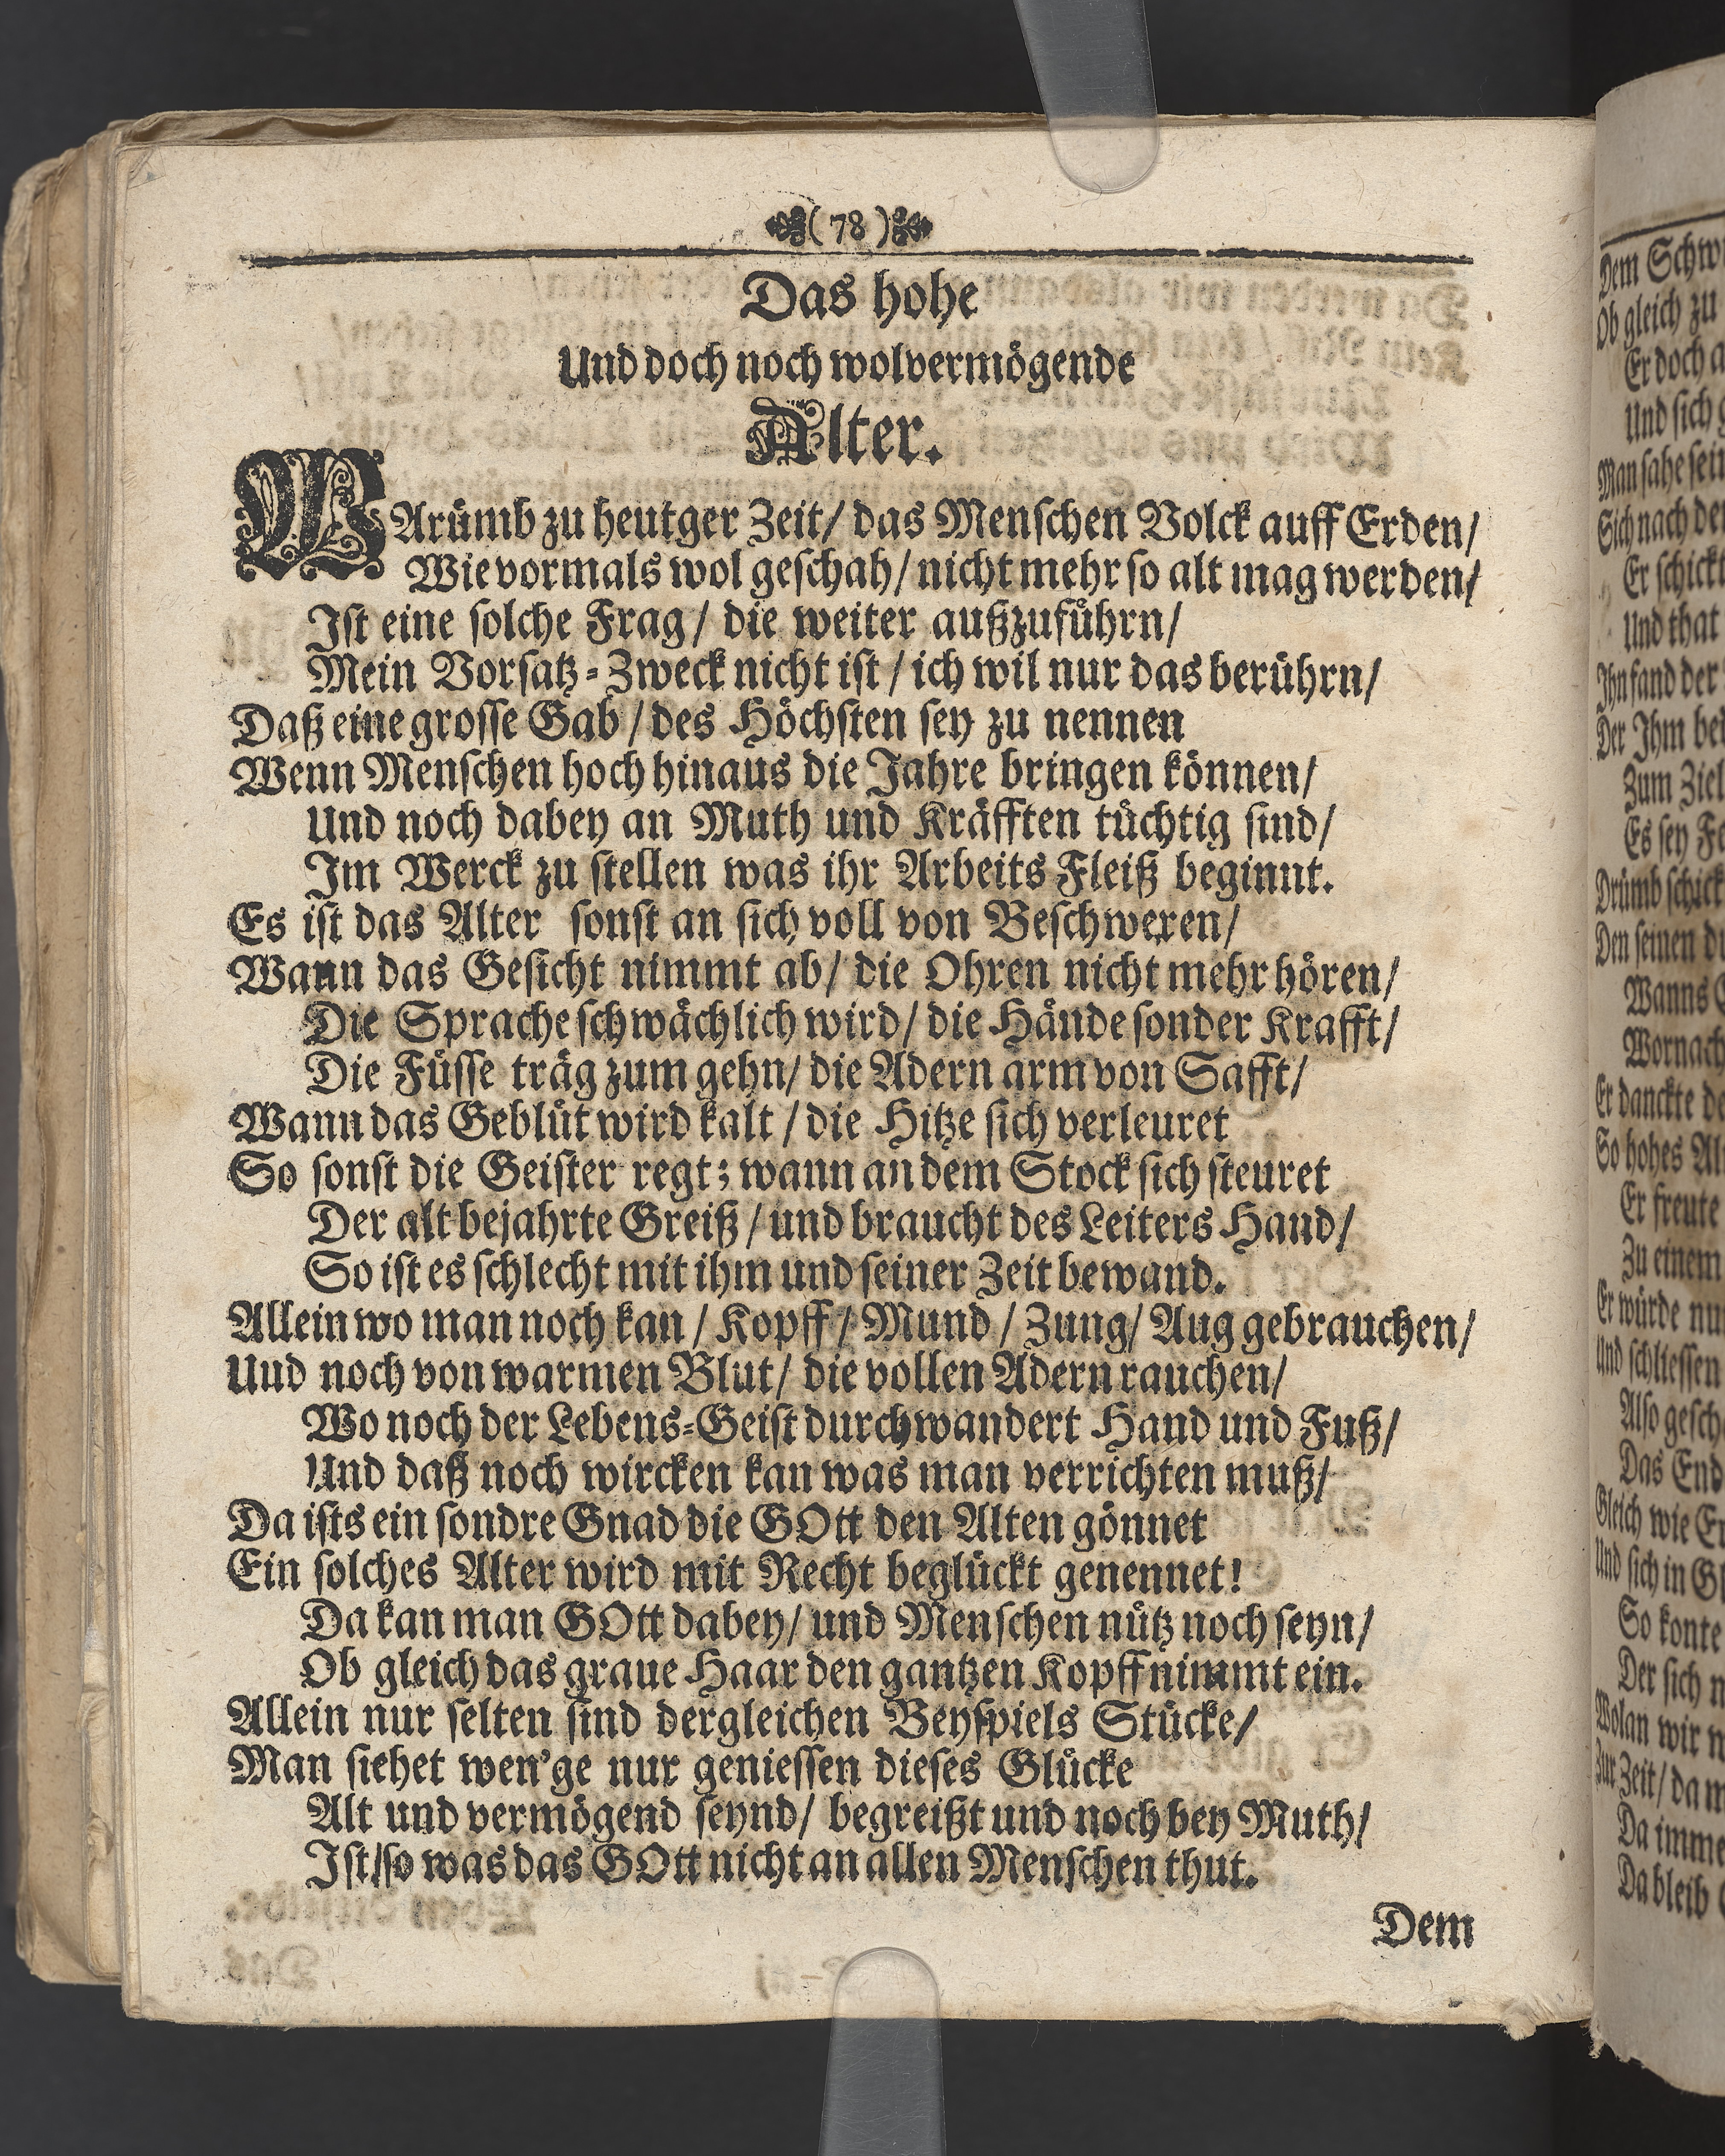 ( 78 )
Das hohe
Und doch noch wolvermögende
Alter.
WArümb zu heutger Zeit/ das Menschen Volck auff Erden/
Wie vormals wol geschah/ nicht mehr so alt mag werden/
Ist eine solche Frag/ die weiter außzuführn/
Mein Vorsatz-Zweck nicht ist/ ich wil nur das berührn/
Daß eine grosse Gab/ des Höchsten sey zu nennen
Wenn Menschen hoch hinaus die Jahre bringen können/
Und noch dabey an Muth und Kräfften tüchtig sind/
Im Werck zu stellen was ihr Arbeits Fleiß beginnt.
Es ist das Alter sonst an sich voll von Beschweren/
Wann das Gesicht nimmt ab/ die Ohren nicht mehr hören/
Die Sprache schwächlich wird/ die Hände sonder Krafft/
Die Füsse träg zum gehn/ die Adern arm von Safft/
Wann das Geblüt wird kalt/ die Hitze sich verleuret
So sonst die Geister regt; wann an dem Stock sich steuret
Der alt bejahrte Greiß/ und braucht des Leiters Hand/
So ist es schlecht mit ihm und seiner Zeit bewand.
Allein wo man noch kan/ Kopff/ Mund/ Zung/ Aug gebrauchen/
Und noch von warmen Blut/ die vollen Adern rauchen/
Wo noch der Lebens-Geist durchwandert Hand und Fuß/
Und daß noch wircken kan was man verrichten muß/
Da ists ein sondre Gnad die GOtt den Alten gönnet
Ein solches Alter wird mit Recht beglückt genennet!
Da kan man GOtt dabey/ und Menschen nütz noch seyn/
Ob gleich das graue Haar den gantzen Kopff nimmt ein.
Allein nur selten sind dergleichen Beyspiels Stücke/
Man siehet wen'ge nur geniessen dieses Glücke
Alt und vermögend seynd/ begreißt und noch bey Muth/
Ist/ so was das GOtt nicht an allen Menschen thut.
Dem
Dem
Ob gleich zu
Er doch
Und sich
Man sahe
Sich nach
Er schickt
Und that
Ihn fand der
Der Ihm
Zum Ziel
Es sey
Drümb
Den seinen
Wanns
Wornach
Er danckte
So hohes
Er freute
Zu einem
Er würde
Und schliessen
Also
Das
Gleich wie
Und sich in
So konte
Der sich
Wolan wir
Zur Zeit/
Da
Da bleib